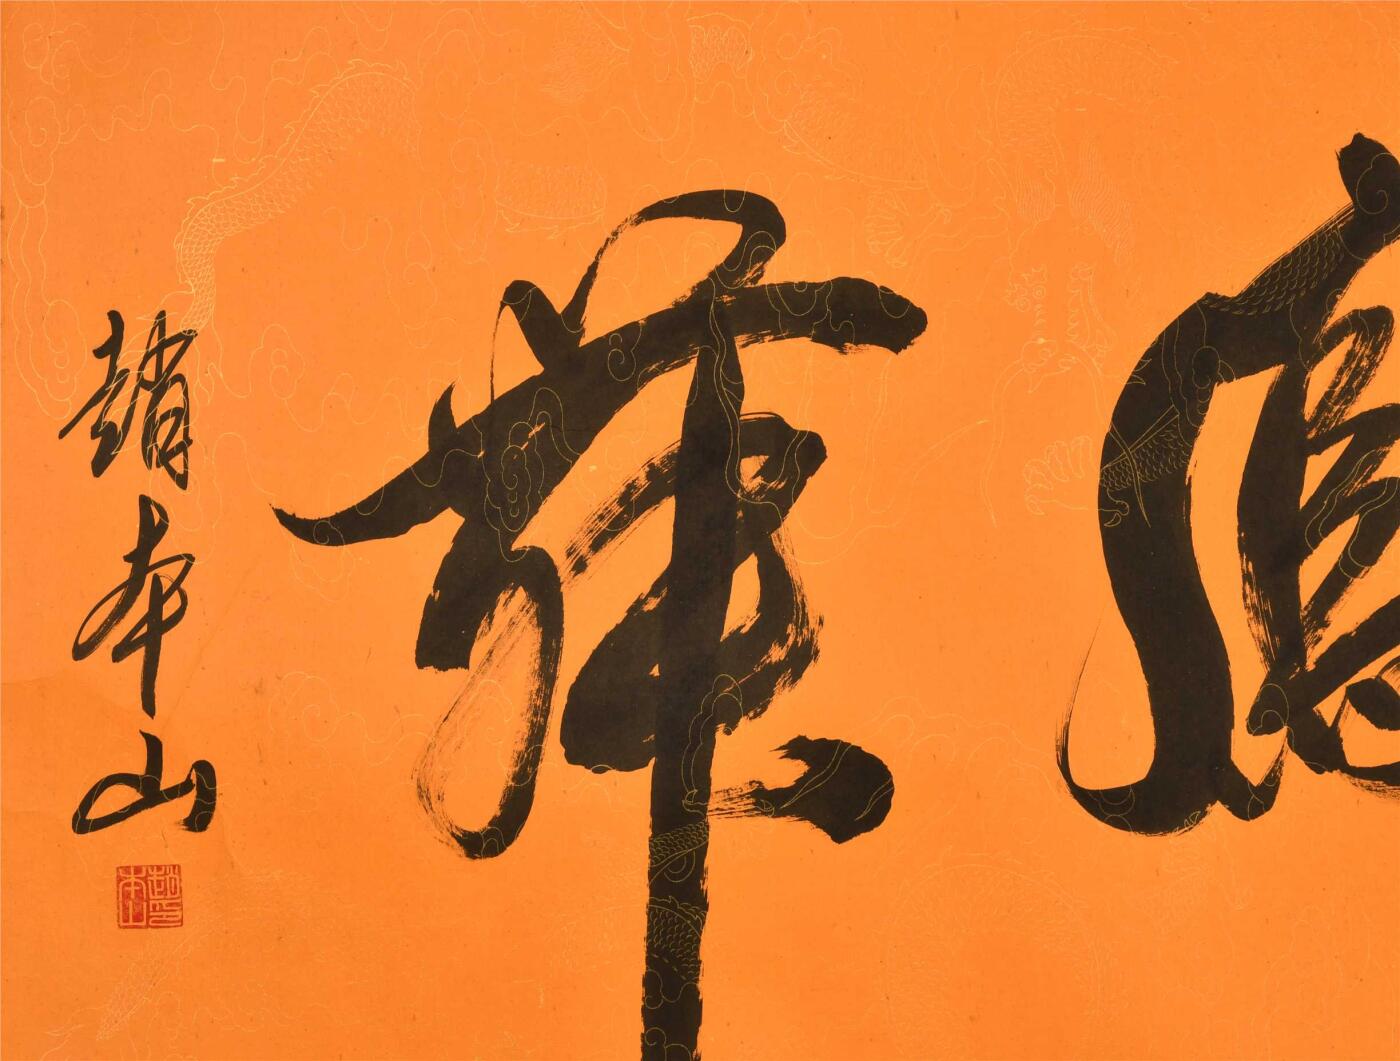 舞
趙本山
趙印
本山